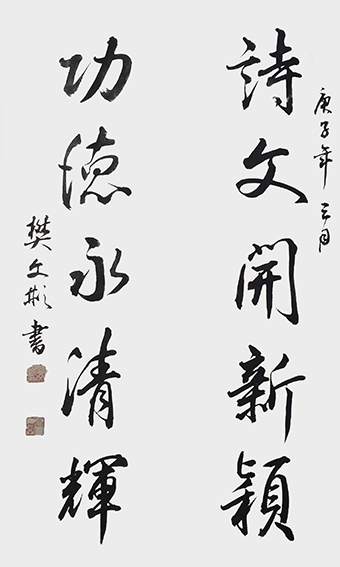 庚子年三月
詩文開新穎
功德永清輝
樊文彬書